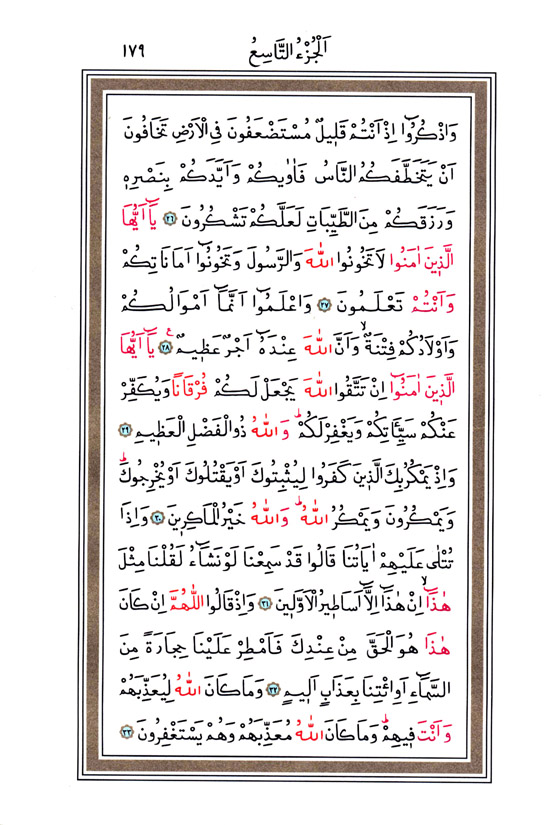 اَلْجُزْءُ التَّاسِعُ ١٧٩
وَاذْكُرُٓوا اِذْ اَنْتُمْ قَلٖيلٌ مُسْتَضْعَفُونَ فِي الْاَرْضِ تَخَافُونَ
اَنْ يَتَخَطَّفَكُمُ النَّاسُ فَاٰوٰيكُمْ وَاَيَّدَكُمْ بِنَصْرِهٖ
وَرَزَقَكُمْ مِنَ الطَّيِّبَاتِ لَعَلَّكُمْ تَشْكُرُونَ ﴿٢٦﴾ يَٓا اَيُّهَا
الَّذٖينَ اٰمَنُوا لَا تَخُونُوا اللّٰهَ وَالرَّسُولَ وَتَخُونُٓوا اَمَانَاتِكُمْ
وَاَنْتُمْ تَعْلَمُونَ ﴿٢٧﴾ وَاعْلَمُٓوا اَنَّمَٓا اَمْوَالُكُمْ
وَاَوْلَادُكُمْ فِتْنَةٌۙ وَاَنَّ اللّٰهَ عِنْدَهُٓ اَجْرٌ عَظٖيمٌ ﴿٢٨﴾ۚ يَٓا اَيُّهَا
الَّذٖينَ اٰمَنُٓوا اِنْ تَتَّقُوا اللّٰهَ يَجْعَلْ لَكُمْ فُرْقَانًا وَيُكَفِّرْ
عَنْكُمْ سَيِّـَٔاتِكُمْ وَيَغْفِرْ لَكُمْۜ وَاللّٰهُ ذُو الْفَضْلِ الْعَظٖيمِ ﴿٢٩﴾
وَاِذْ يَمْكُرُ بِكَ الَّذٖينَ كَفَرُوا لِيُثْبِتُوكَ اَوْ يَقْتُلُوكَ اَوْ يُخْرِجُوكَۜ
وَيَمْكُرُونَ وَيَمْكُرُ اللّٰهُۜ وَاللّٰهُ خَيْرُ الْمَاكِرٖينَ ﴿٣٠﴾ وَاِذَا
تُتْلٰى عَلَيْهِمْ اٰيَاتُنَا قَالُوا قَدْ سَمِعْنَا لَوْ نَشَٓاءُ لَقُلْنَا مِثْلَ
هٰذَٓاۙ اِنْ هٰذَٓا اِلَّٓا اَسَاطٖيرُ الْاَوَّلٖينَ ﴿٣١﴾ وَاِذْ قَالُوا اللّٰهُمَّ اِنْ كَانَ
هٰذَا هُوَ الْحَقَّ مِنْ عِنْدِكَ فَاَمْطِرْ عَلَيْنَا حِجَارَةً مِنَ
السَّمَٓاءِ اَوِ ائْتِنَا بِعَذَابٍ اَلٖيمٍ ﴿٣٢﴾ وَمَا كَانَ اللّٰهُ لِيُعَذِّبَهُمْ
وَاَنْتَ فٖيهِمْۜ وَمَا كَانَ اللّٰهُ مُعَذِّبَهُمْ وَهُمْ يَسْتَغْفِرُونَ ﴿٣٣﴾